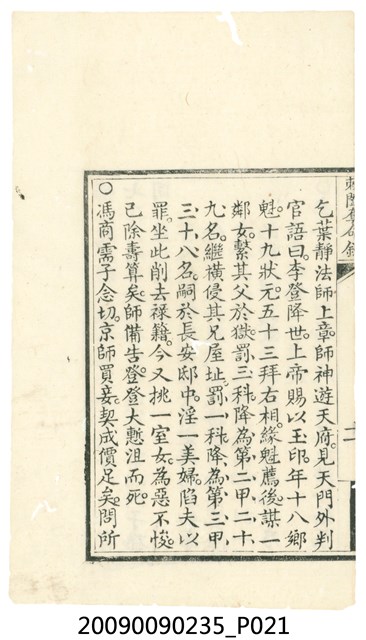 乞葉靜法師上章師神遊天府。見天門外判
官語曰。李登降世。上帝賜以玉印。年十八鄉
魁。十九狀元。五十三拜右相。緣魁薦後謀一
鄰女。繫其父於獄。罰三科。降為第二甲二十
九名。繼橫侵其兄屋址。罰一科。降為第三甲
三十八名。嗣於長安邸中淫一美婦。陷夫以
罪。坐此削去祿籍。今又挑一室女。為惡不悛。
已除壽算矣。師備告登。登大慙沮而死。
○馮商需子念切。京師買妾。契成價足矣。問所
20090090235_P021